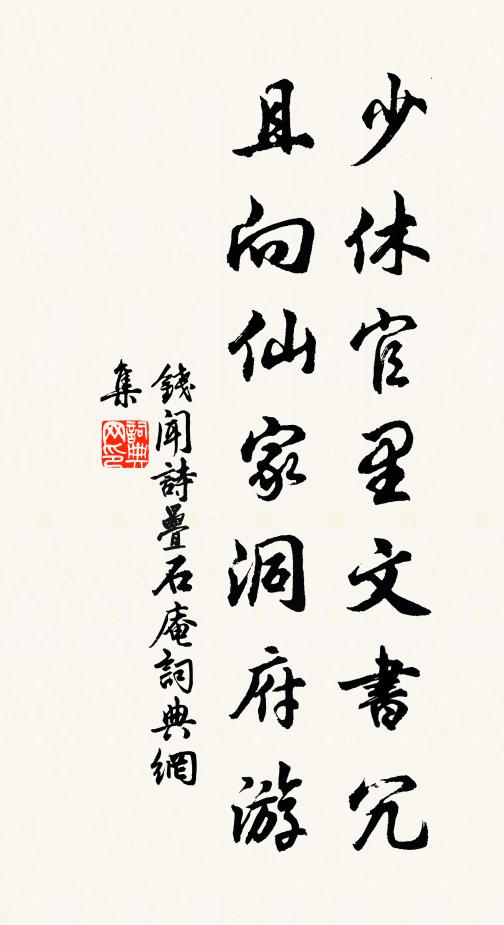 少休官里文書冗
且向仙家洞府游
錢聞詩疊石庵詞典網
集
詞典网印